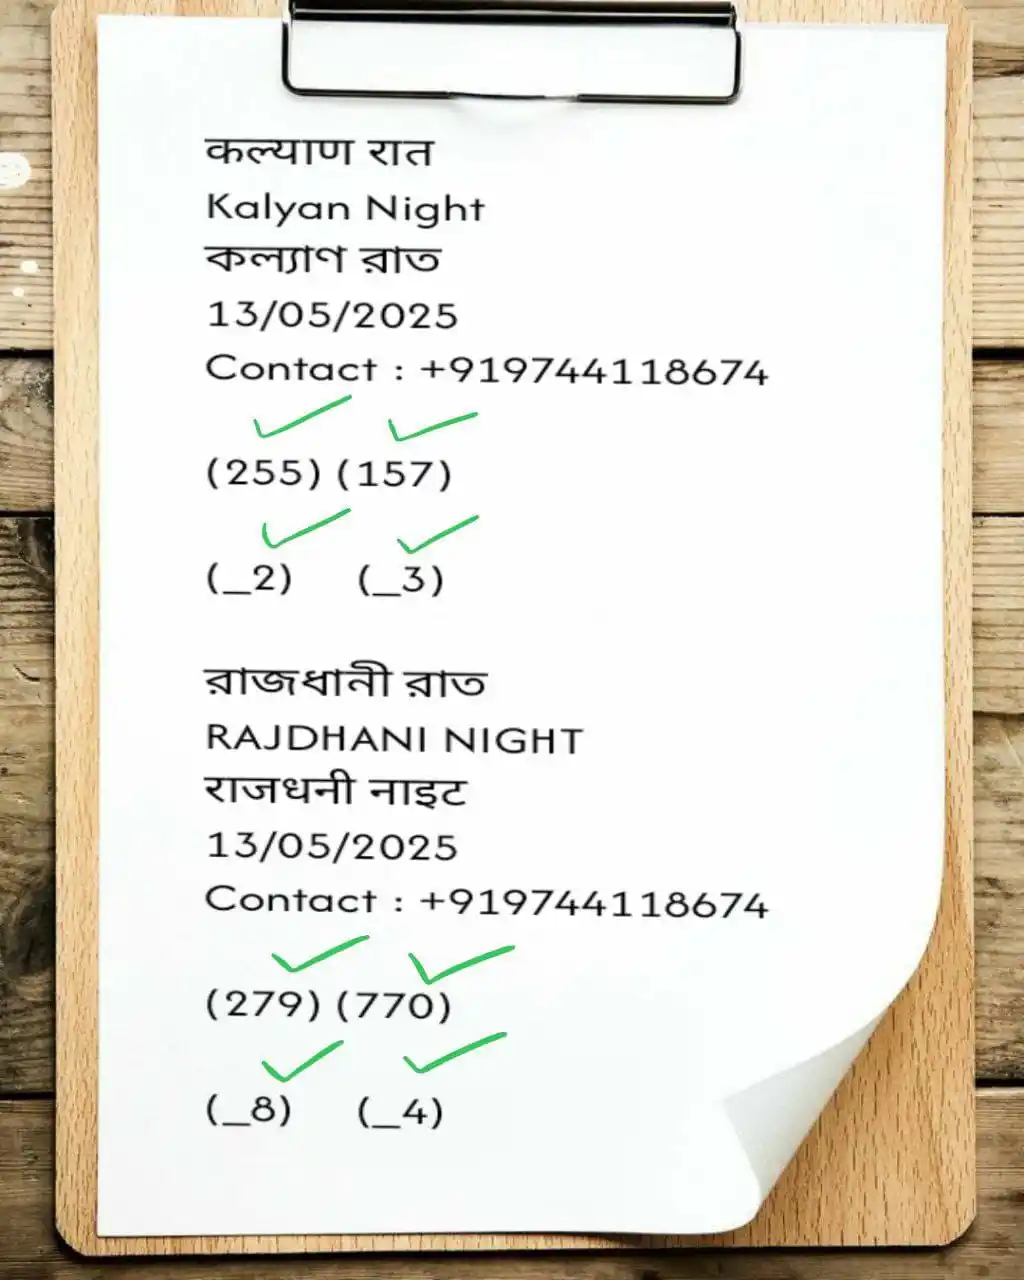 कल्याण रात
Kalyan Night
কল্যাণ রাত
13/05/2025
Contact : +919744118674
(255) (157)
(_2) (_3)
রাজধানী রাত
RAJDHANI NIGHT
राजधनी नाइट
13/05/2025
Contact : +919744118674
(279) (770)
(_8) (_4)